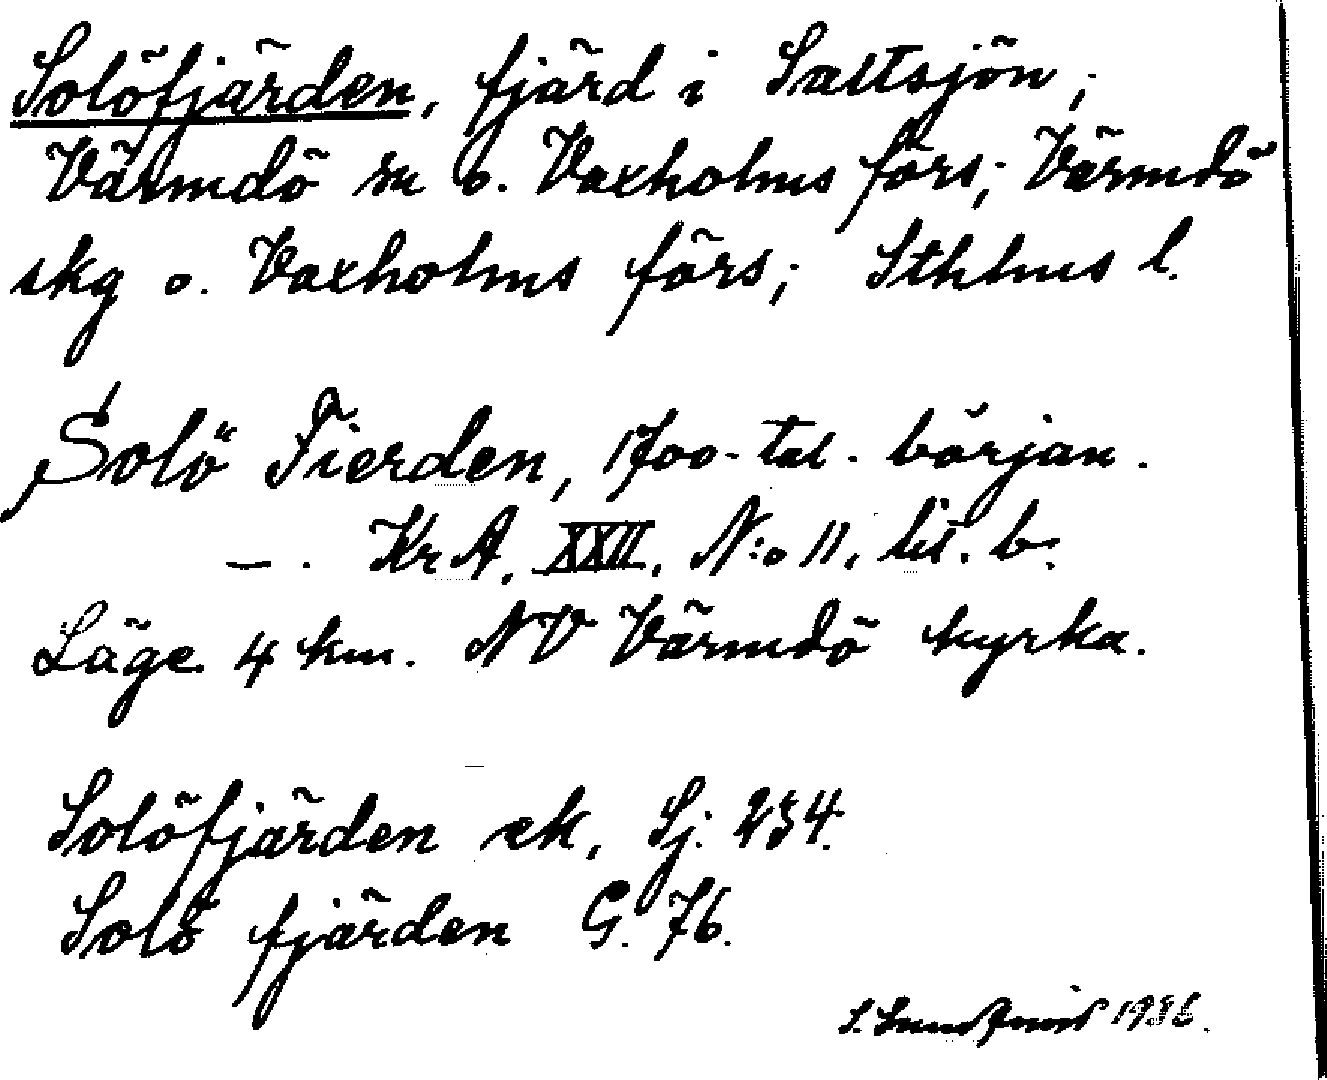 Solöfjärden, fjärd i Saltsjön;
Värmdö sn o. Vaxholms förs; Värmdö
skg o. Vaxholms förs; Sthlms l.
Solö Fierden, 1700-tal. början.
—. KrA, XXII, N:o 11, lit. b.
Läge 4 km. NV Värmdö kyrka.
Solöfjärden ek, Sj. 234.
Solö fjärden G. 76.
S. Lundqvist 1936.